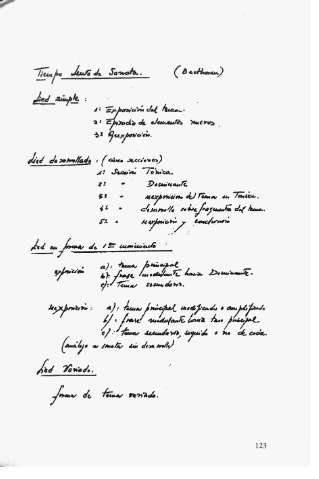 Tiempo lento de Sonata. (Beethoven)
Lied simple :
1ª Exposición del tema.
2ª Episodio de elementos nuevos.
3ª Reexposición.
Lied desarrollado : (cinco secciones)
1ª Sección Tónica.
2ª " Dominante
3ª " reexposición del Tema en Tónica.
4ª " desarrollo sobre fragmentos del tema.
5ª " reexposición y conclusión
Lied en forma de 1er movimiento :
exposición a) : tema principal
b) : frase modulante hacia Dominante.
c) : Tema secundario.
reexposición : a) : tema principal modificado o amplificado
b) : frase modulante hacia tono principal
c) : tema secundario, seguido o no de coda.
(análogo a sonata sin desarrollo)
Lied Variado.
forma de tema variado.
123